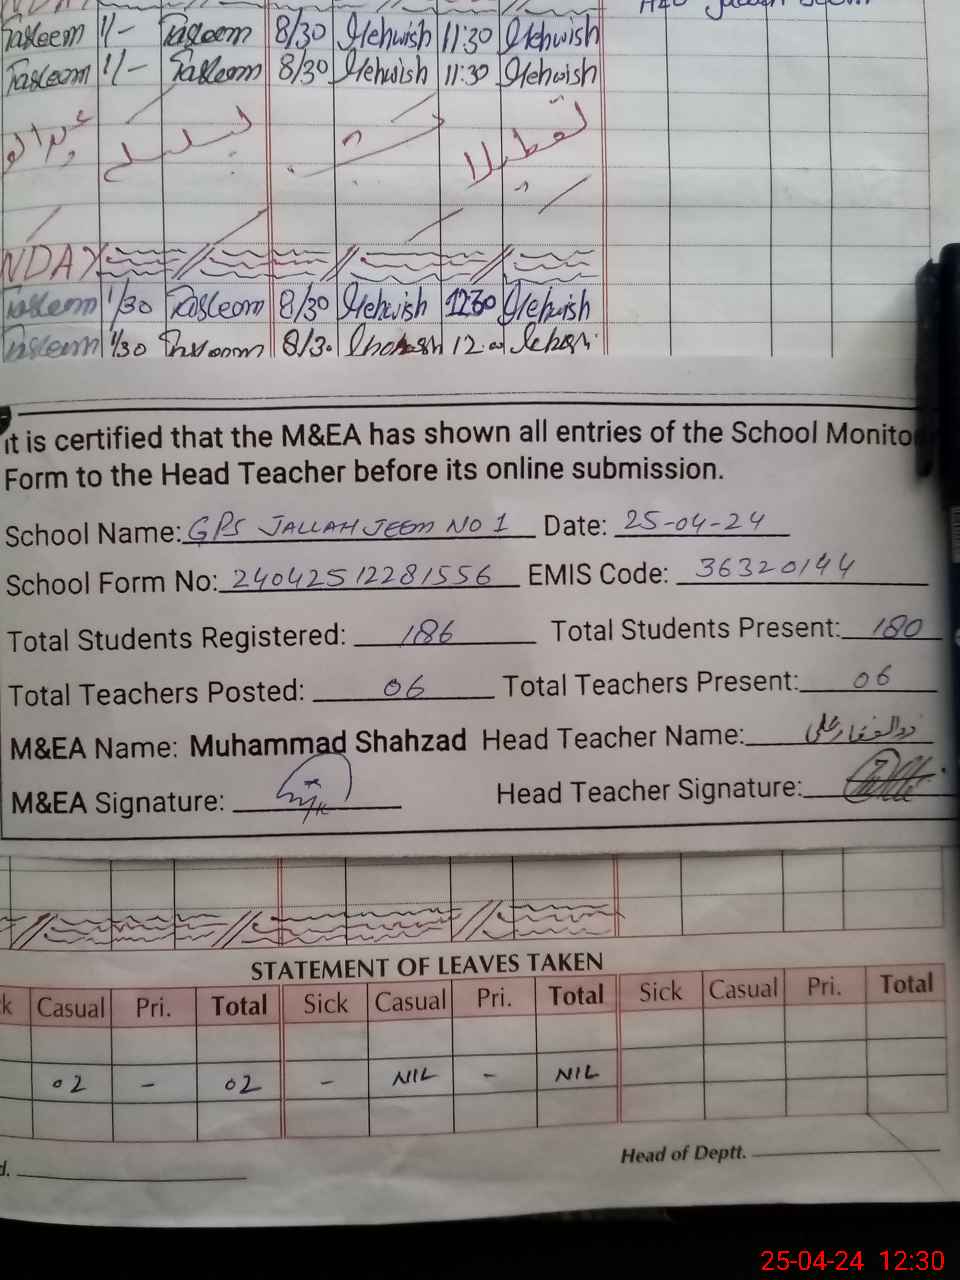 Tasleem 1/- Tasleem 8/30 Mehwish 11:30 Mehwish
Tasleem 1/- Tasleem 8/30 Mehwish 11:30 Mehwish
تعطیلات
NDAY
Tasleem 1/30 Tasleem 8/30 Mehwish 12:30 Mehwish
Tasleem 1/30 8/30
it is certified that the M&EA has shown all entries of the School Monito
Form to the Head Teacher before its online submission.
School Name: GPS JALLAH JEEM NO 1 Date: 25-04-24
School Form No: 24042512281556 EMIS Code: 36320144
Total Students Registered: 186 Total Students Present: 180
Total Teachers Posted: 06 Total Teachers Present: 06
M&EA Name: Muhammad Shahzad Head Teacher Name: ذوالفقار علی
M&EA Signature: Head Teacher Signature:
STATEMENT OF LEAVES TAKEN
k Casual Pri. Total Sick Casual Pri. Total Sick Casual Pri. Total
02 - 02 - NIL - NIL
d. Head of Deptt.
25-04-24 12:30